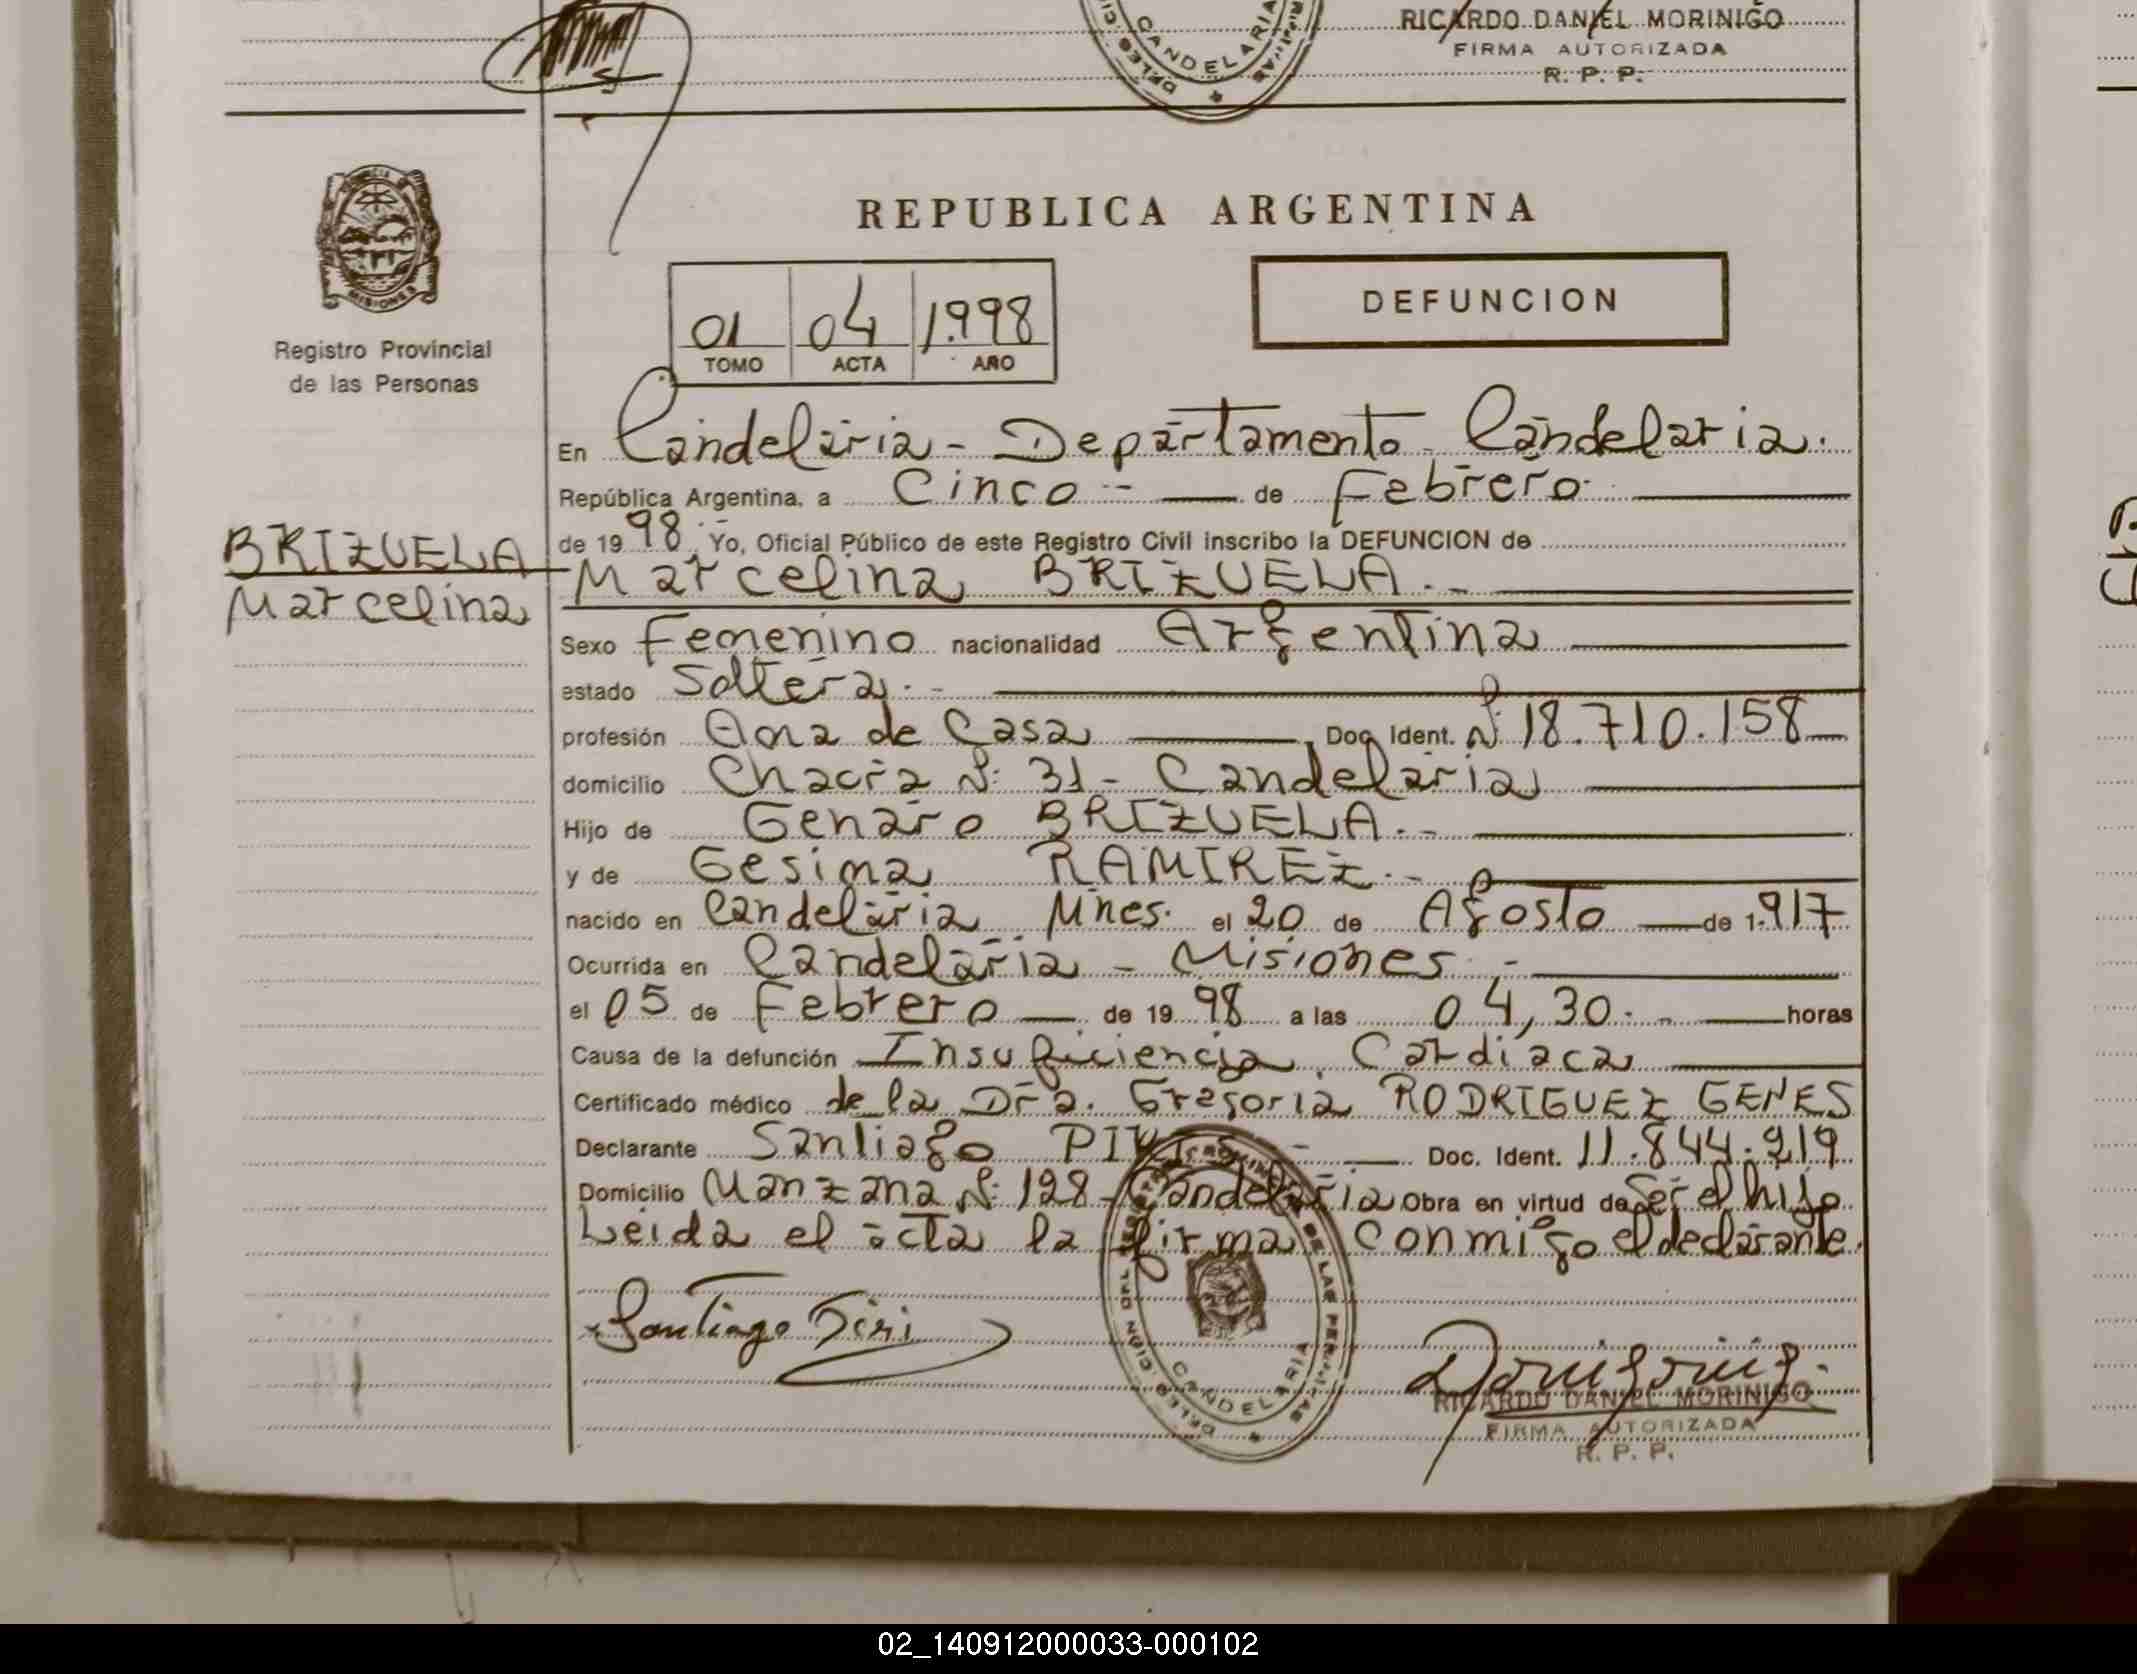 CANDELARIA
RICARDO DANIEL MORINIGO
FIRMA AUTORIZADA
R. P. P.
MISIONES
Registro Provincial
de las Personas
REPUBLICA ARGENTINA
01 04 1.998
TOMO ACTA AÑO
DEFUNCION
En Candelaria - Departamento Candelaria.
República Argentina, a Cinco -- de Febrero
de 19 98. Yo, Oficial Público de este Registro Civil inscribo la DEFUNCION de
BRIZUELA
Marcelina
Marcelina BRIZUELA.-
Sexo Femenino nacionalidad Argentina
estado Soltera.-
profesión Ama de Casa Doc. Ident. Nº 18.710.158
domicilio Chacra Nº 31 - Candelaria
Hijo de Genaro BRIZUELA.-
y de Gesima RAMIREZ.-
nacido en Candelaria Mnes. el 20 de Agosto de 1.917
Ocurrida en Candelaria - Misiones -
el 05 de Febrero de 19 98 a las 04,30.- horas
Causa de la defunción Insuficiencia Cardiaca
Certificado médico de la Dra. Gregoria RODRIGUEZ GENES
Declarante Santiago Doc. Ident. 11.844.219
Domicilio Manzana Nº 128 - Candelaria Obra en virtud de Ser el hijo
Leida el acta la firma conmigo el declarante.
Santiago
CANDELARIA
RICARDO DANIEL MORINIGO
FIRMA AUTORIZADA
R. P. P.
02_140912000033-000102